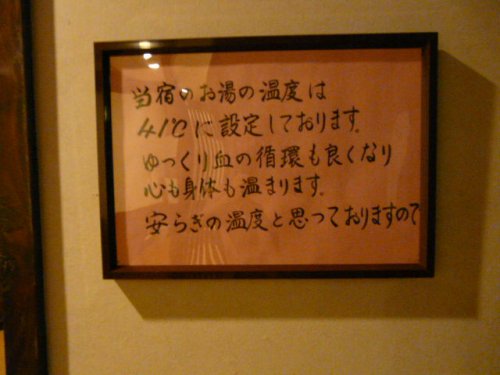 当宿のお湯の温度は
41℃に設定しております。
ゆっくり血の循環も良くなり
心も身体も温まります。
安らぎの温度と思っておりますので